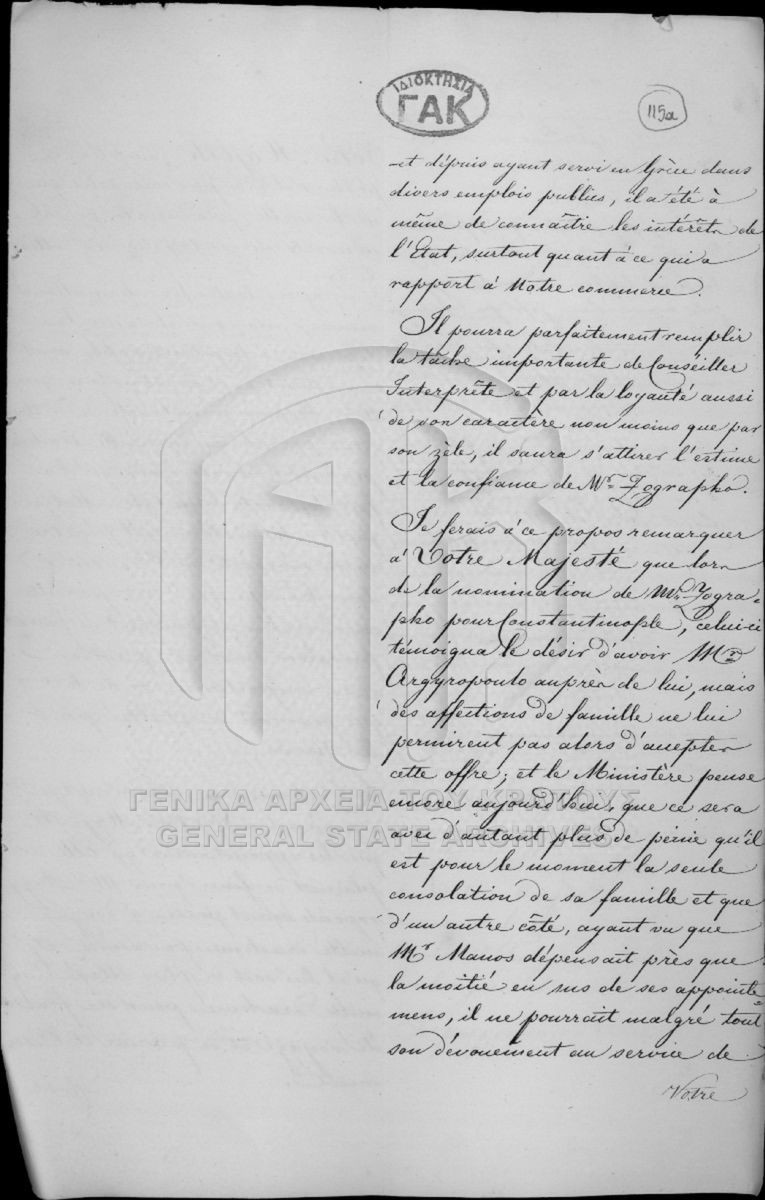 ΙΔΙΟΚΤΗΣΙΑ
ΓΑΚ
115a
et dépuis ayant servi en Grèce dans
divers emplois publics, il a été à
même de connaître les intérêts de
l'Etat, surtout quant à ce qui a
rapport à Notre commerce.
Il pourra parfaitement remplir
la tâche importante de Conséiller
Interprête et par la loyauté aussi
de son caractère non moins que par
son zèle, il saura s'attirer l'estime
et la confiance de Mr. Zographo.
Je ferais à ce propos remarquer
à Votre Majesté que lors
de la nomination de Mr. Zogra=
pho pour Constantinople, celui-ci
témoigna le désir d'avoir Mr
Argyropoulo auprès de lui, mais
des affections de famille ne lui
permirent pas alors d'accepter
cette offre; et le Ministère pense
encore aujourd'hui, que ce sera
avec d'autant plus de peine qu'il
est pour le moment la seule
consolation de sa famille et que
d'un autre côté, ayant vu que
Mr Manos dépensait près que
la moitié en sus de ses appointe=
mens, il ne pourrait malgré tout
son dévouement au service de
Votre
ΓΕΝΙΚΑ ΑΡΧΕΙΑ ΤΟΥ ΚΡΑΤΟΥΣ
GENERAL STATE ARCHIVES